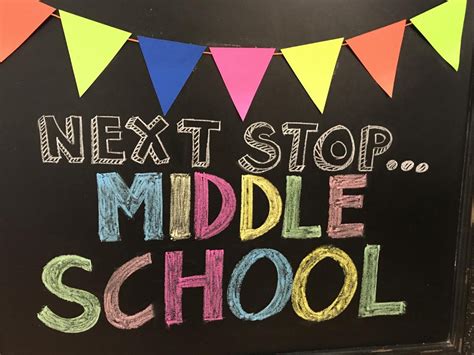 NEXT STOP...
MIDDLE
SCHOOL